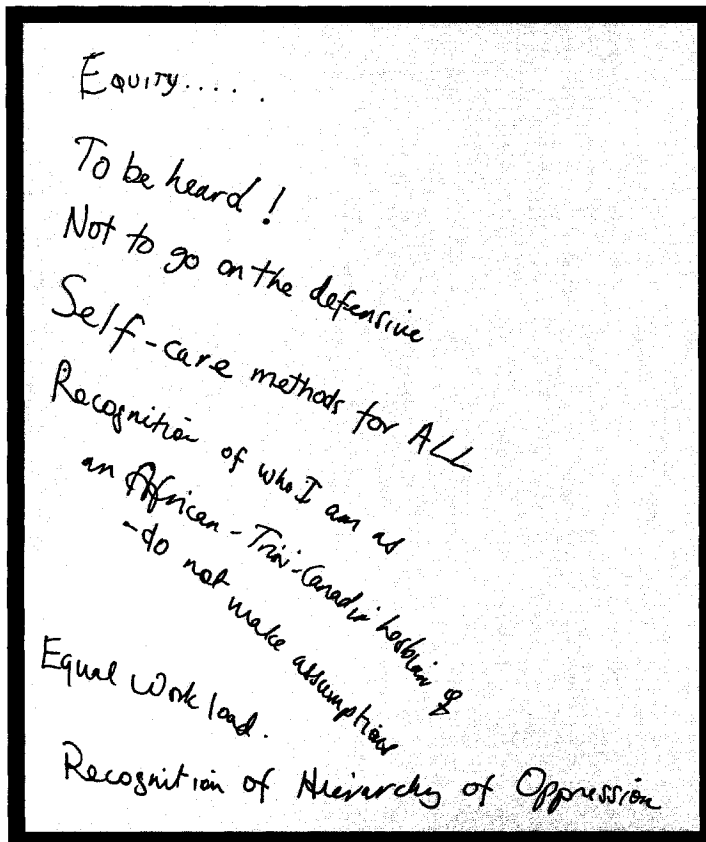 Equity.....
To be heard!
Not to go on the defensive
Self-care methods for ALL
Recognition of who I am as
an African-Trini-Canadian Lesbian ♀
-do not make assumptions
Equal Work load.
Recognition of Hierarchy of Oppression